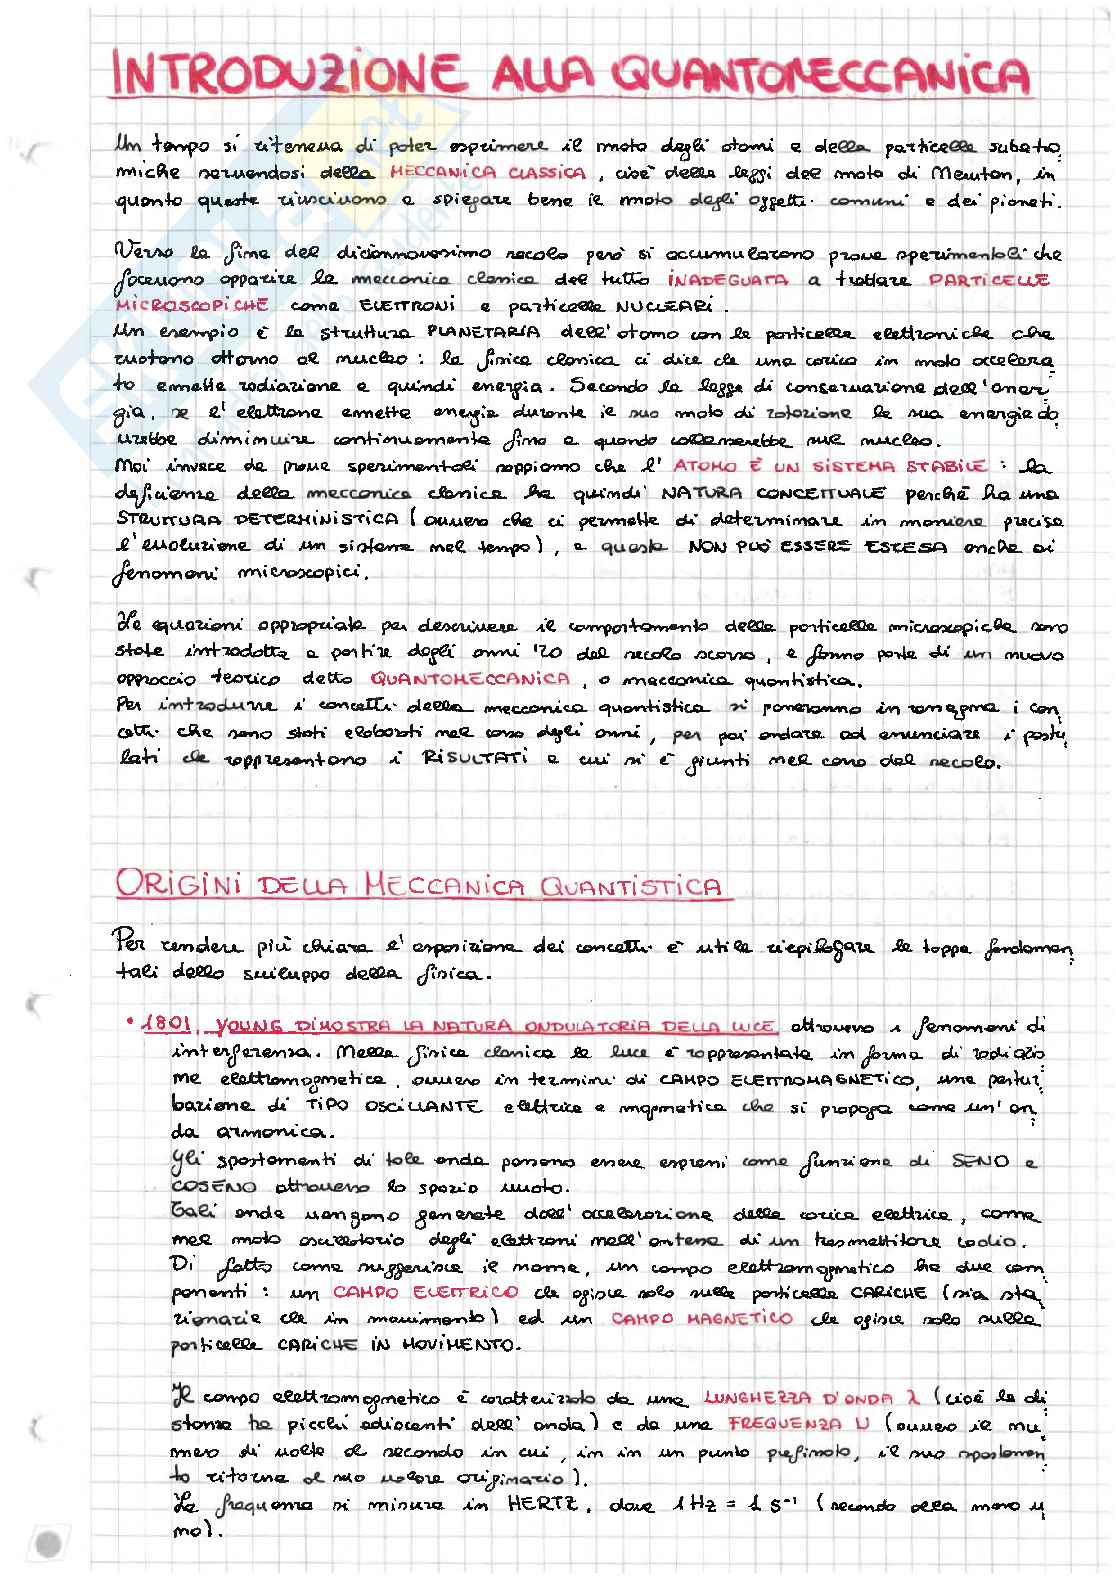 INTRODUZIONE ALLA QUANTOMECCANICA
Un tempo si riteneva di poter esprimere il moto degli atomi e delle particelle subato
miche servendosi della MECCANICA CLASSICA, cioè delle leggi del moto di Newton, in
quanto queste riuscivano a spiegare bene il moto degli oggetti comuni e dei pianeti.
Verso la fine del diciannovesimo secolo però si accumularono prove sperimentali che
facevano apparire la meccanica classica del tutto INADEGUATA a trattare PARTICELLE
MICROSCOPICHE come ELETTRONI e particelle NUCLEARI.
Un esempio è la struttura PLANETARIA dell'atomo con le particelle elettroniche che
ruotano attorno al nucleo: la fisica classica ci dice che una carica in moto accelera
to emette radiazione e quindi energia. Secondo la legge di conservazione dell'ener
gia, se l'elettrone emette energia durante il suo moto di rotazione la sua energia do
vrebbe diminuire continuamente fino a quando collasserebbe sul nucleo.
Noi invece da prove sperimentali sappiamo che l'ATOMO È UN SISTEMA STABILE: la
deficienza della meccanica classica ha quindi NATURA CONCETTUALE perchè ha una
STRUTTURA DETERMINISTICA (ovvero che ci permette di determinare in maniera precisa
l'evoluzione di un sistema nel tempo), e questa NON PUÒ ESSERE ESTESA anche ai
fenomeni microscopici.
Le equazioni appropriate per descrivere il comportamento delle particelle microscopiche sono
state introdotte a partire dagli anni '20 del secolo scorso, e fanno parte di un nuovo
approccio teorico detto QUANTOMECCANICA, o meccanica quantistica.
Per introdurre i concetti della meccanica quantistica si porranno in rassegna i con
cetti che sono stati elaborati nel corso degli anni, per poi andare ad enunciare i postu
lati che rappresentano i RISULTATI a cui si è giunti nel corso del secolo.
ORIGINI DELLA MECCANICA QUANTISTICA
Per rendere più chiara l'esposizione dei concetti è utile riepilogare le tappe fondamen
tali dello sviluppo della fisica.
• 1801, YOUNG DIMOSTRA LA NATURA ONDULATORIA DELLA LUCE attraverso i fenomeni di
interferenza. Nella fisica classica la luce è rappresentata in forma di radiazio
ne elettromagnetica, ovvero in termini di CAMPO ELETTROMAGNETICO, una pertur
bazione di TIPO OSCILLANTE elettrica e magnetica che si propaga come un'on
da armonica.
Gli spostamenti di tale onda possono essere espressi come funzione di SENO e
COSENO attraverso lo spazio vuoto.
Tali onde vengono generate dall'accelerazione delle carica elettrica, come
nel moto oscillatorio degli elettroni nell'antenna di un trasmettitore radio.
Di fatto come suggerisce il nome, un campo elettromagnetico ha due com
ponenti: un CAMPO ELETTRICO che agisce solo sulle particelle CARICHE (sia sta
zionarie che in movimento) ed un CAMPO MAGNETICO che agisce solo sulle
particelle CARICHE IN MOVIMENTO.
Il campo elettromagnetico è caratterizzato da una LUNGHEZZA D'ONDA λ (cioè la di
stanza tra picchi adiacenti dell'onda) e da una FREQUENZA ν (ovvero il nu
mero di volte al secondo in cui, in in un punto prefissato, il suo spostamen
to ritorna al suo valore originario).
La frequenza si misura in HERTZ, dove 1 Hz = 1 s⁻¹ (secondo alla meno u
no).